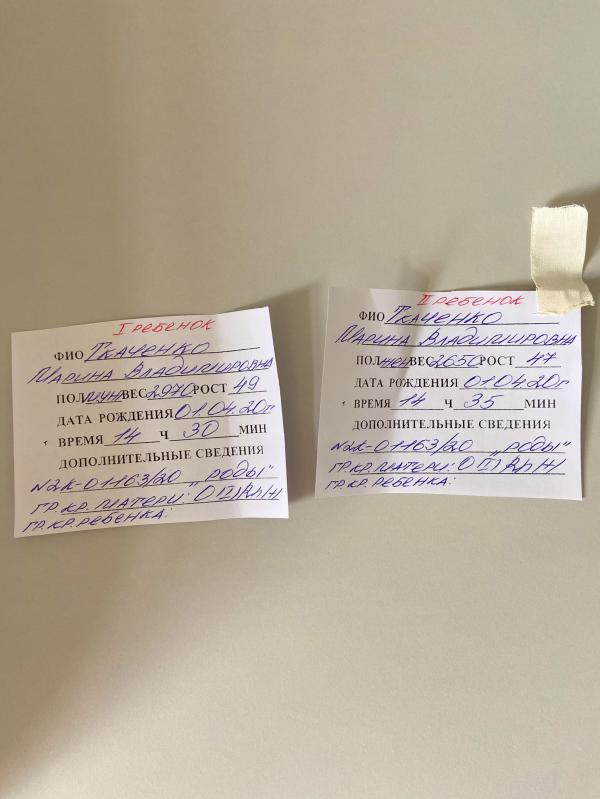 I РЕБЕНОК
ФИО ТКАЧЕНКО
МАРИНА ВЛАДИМИРОВНА
ПОЛ МУЖ ВЕС 2970 РОСТ 49
ДАТА РОЖДЕНИЯ 01.04.20г
ВРЕМЯ 14 Ч 30 МИН
ДОПОЛНИТЕЛЬНЫЕ СВЕДЕНИЯ
№2К-01163/20 "РОДЫ"
ГР.КР.МАТЕРИ: O(I)Rh(+)
ГР.КР.РЕБЕНКА:
II РЕБЕНОК
ФИО ТКАЧЕНКО
МАРИНА ВЛАДИМИРОВНА
ПОЛ ЖЕН ВЕС 2650 РОСТ 47
ДАТА РОЖДЕНИЯ 01.04.20г
ВРЕМЯ 14 Ч 35 МИН
ДОПОЛНИТЕЛЬНЫЕ СВЕДЕНИЯ
№2К-01163/20 "РОДЫ"
ГР.КР.МАТЕРИ: O(I)Rh(+)
ГР.КР.РЕБЕНКА: